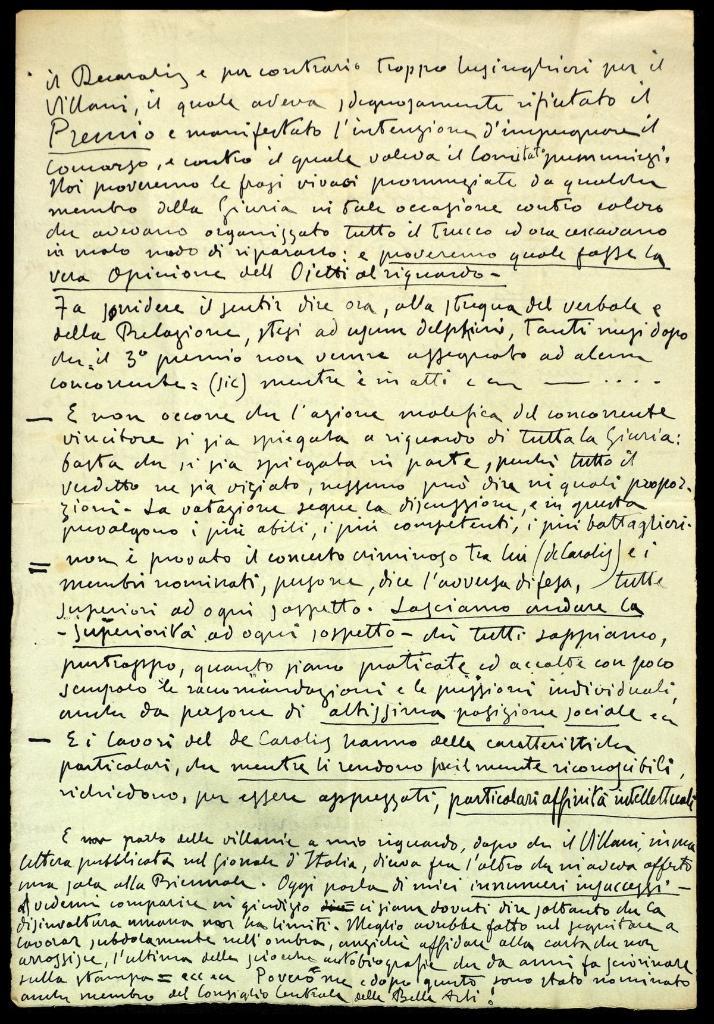 il Decarolis e per contrario troppo lusinghieri per il
Villani, il quale aveva sdegnosamente rifiutato il
Premio e manifestato l'intenzione d'impugnare il
Concorso, e contro il quale voleva il Comitato premunirsi.
Noi proveremo le frasi vivaci pronunziate da qualche
membro della Giuria in tale occasione contro coloro
che avevano organizzato tutto il trucco ed ora cercavano
in malo modo di ripararlo: e proveremo quale fosse la
vera opinione dell'Ojetti al riguardo -
Fa sorridere il sentir dire ora, alla stregua del verbale e
della Relazione, stesi ad usum delphini, tanti mesi dopo
che "il 3° premio non venne assegnato ad alcun
concorrente = (sic) mentre è in atti e ....
— E non occorre che l'azione malefica del concorrente
vincitore si sia spiegata a riguardo di tutta la Giuria:
basta che si sia spiegata in parte, perché tutto il
verdetto ne sia viziato, nessuno può dire in quali propor-
zioni. La votazione segue la discussione, e in questa
prevalgono i più abili, i più competenti, i più battaglieri.
= non è provato il concerto criminoso tra lui (deCarolis) e i
membri nominati, persone, dice l'avversa difesa, tutte
superiori ad ogni sospetto. Lasciamo andare la
- superiorità ad ogni sospetto - chè tutti sappiamo,
purtroppo, quanto siano praticate ed accolte con poco
scrupolo le raccomandazioni e le pressioni individuali,
anche da persone di altissima posizione sociale ecc
— E i lavori del de Carolis hanno delle caratteristiche
particolari, che mentre li rendono facilmente riconoscibili,
richiedono, per essere apprezzati, particolari affinità intellettuali
E non parlo delle villanie a mio riguardo, dopo che il Villani, in una
lettera pubblicata nel Giornale d'Italia, diceva fra l'altro che mi aveva offerto
una sala alla Biennale. Oggi parla di miei innumeri insuccessi -
A vedermi comparire in giudizio ci siam dovuti dire soltanto che la
disinvoltura umana non ha limiti. Meglio avrebbe fatto nel seguitare a
lavorar subdolamente nell'ombra, anziché affidare alla carta che non
arrossisce, l'ultima delle sciocche autobiografie che da anni fa sciorinare
sulla stampa = ecc ecc Povero me e dopo questo sono stato nominato
anche membro del Consiglio Centrale delle Belle Arti!